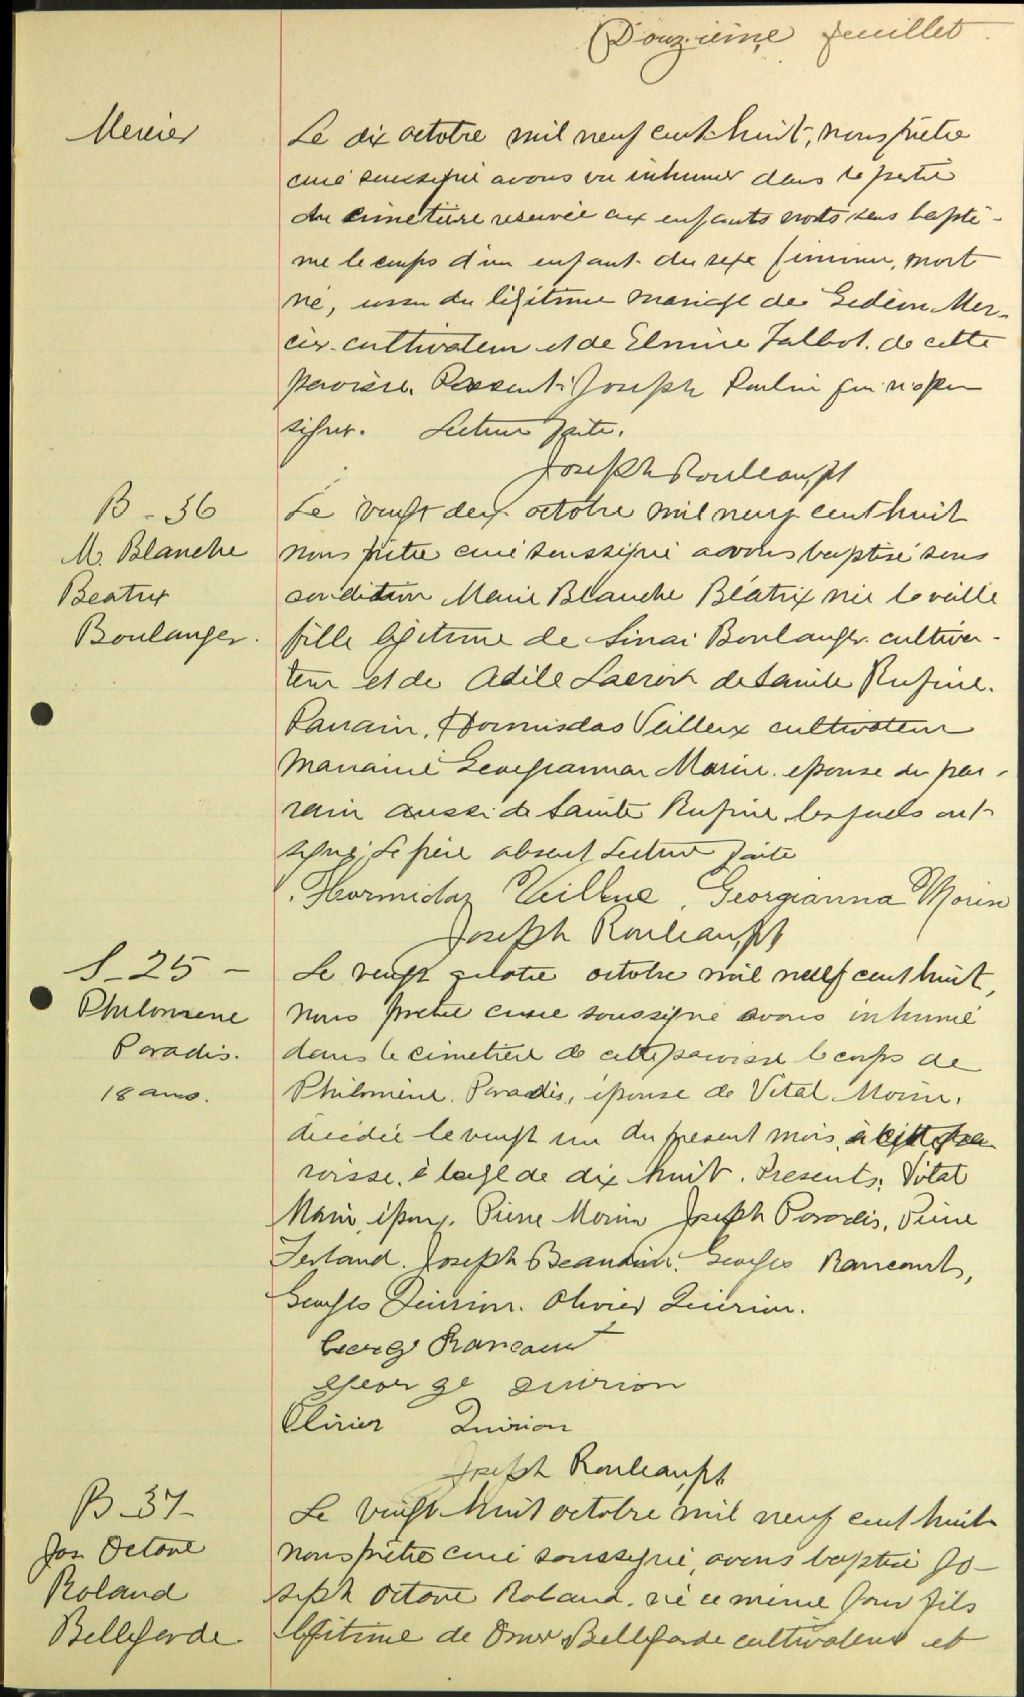 Douzième feuillet.
Mercier
Le dix octobre mil neuf cent huit, nous prêtre
curé soussigné avons vu inhumer dans la partie
du cimetière reservée aux enfants morts sans baptê-
me le corps d'un enfant du sexe féminin, mort
né, issu du légitime mariage de Gedéon Mer-
cier cultivateur et de Elmire Talbot de cette
paroisse. Present: Joseph Poulin qui n'a pu
signer. Lecture faite.
Joseph Rouleau, ptr
B - 36
M. Blanche
Beatrix
Boulanger.
Le vingt deux octobre mil neuf cent huit
nous prêtre curé soussigné avons baptisé sous
condition Marie Blanche Béatrix née la veille
fille légitime de Sinaï Boulanger cultiva-
teur et de Adèle Lacroix de Sainte Rufine.
Parrain, Hormisdas Veilleux cultivateur
Marraine Georgianna Morin épouse du par-
rain aussi de Sainte Rufine, lesquels ont
signé. Le père absent Lecture faite
Hormidas Georgianna Morin
Joseph Rouleau, ptr
S - 25 -
Philomene
Paradis.
18 ans.
Le vingt quatre octobre mil neuf cent huit,
nous prêtre curé soussigné avons inhumé
dans le cimetière de cette paroisse le corps de
Philomène Paradis, épouse de Vital Morin,
décédée le vingt un du présent mois, à cette pa
roisse, à l'age de dix huit. Presents: Vital
Morin, époux, Pierre Morin Joseph Paradis, Pierre
Ferland. Joseph Beaudoin. Georges Rancourt,
Georges Quirion. Olivier Quirion.
George Rancourt
George Quirion
Olivier Quirion
Joseph Rouleau, ptr.
B - 37 -
Jos Octave
Roland
Bellegarde.
Le vingt huit octobre mil neuf cent huit
nous prêtre curé soussigné, avons baptisé Jo-
seph Octave Roland, né ce même jour fils
légitime de Omer Bellegarde cultivateur et